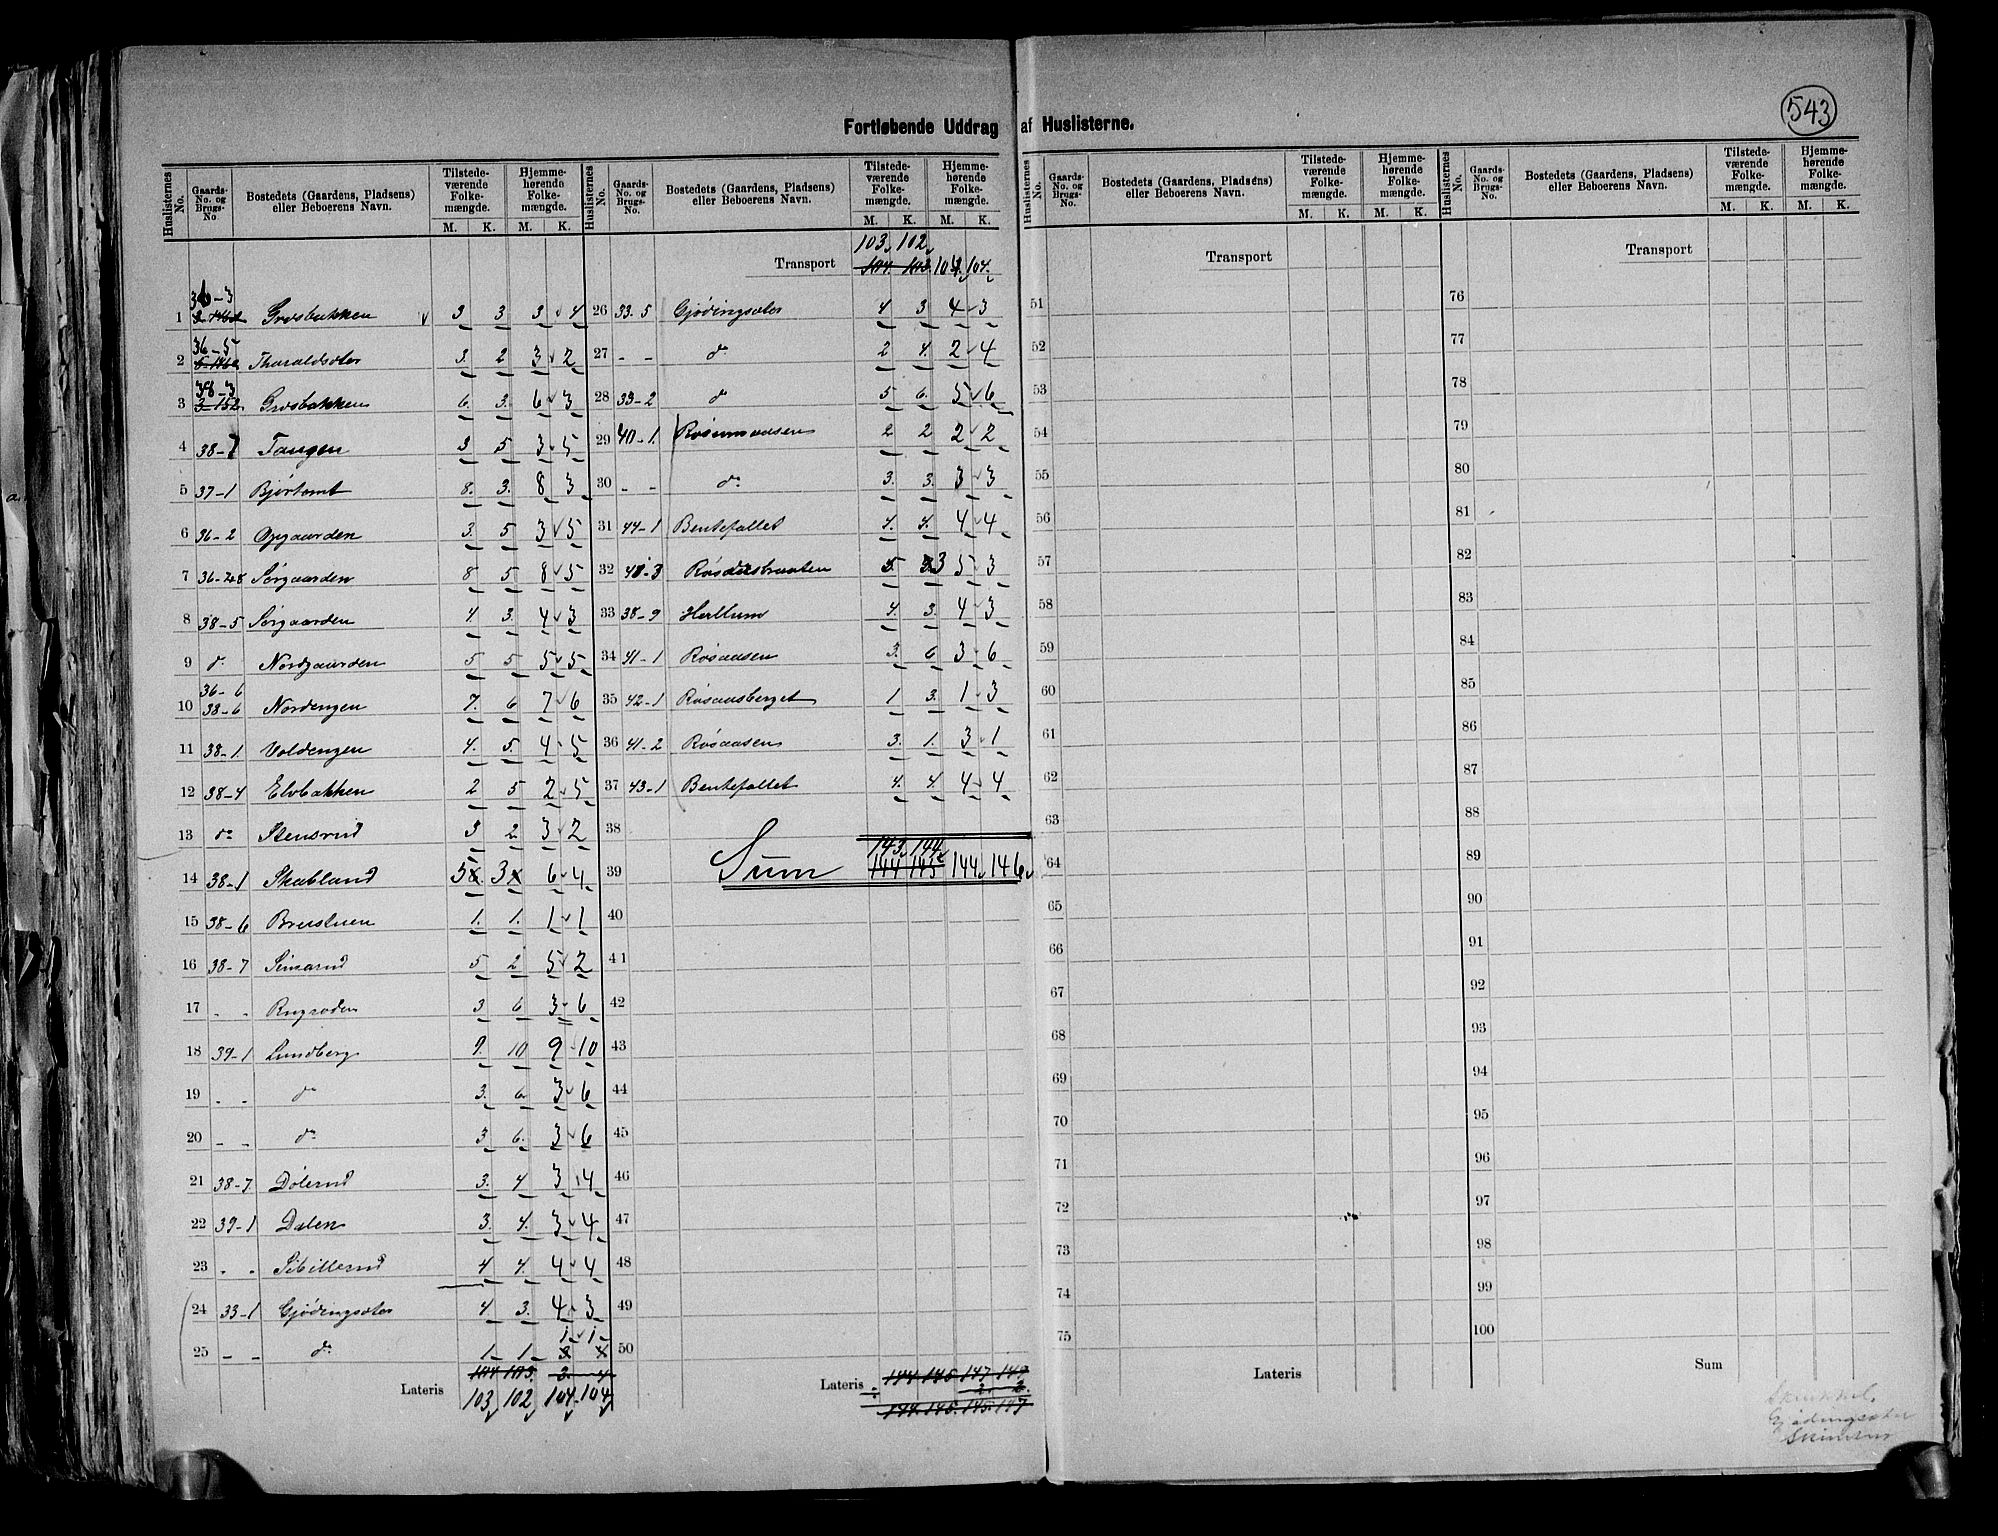 543
Fortløbende Uddrag af Huslisterne.
Huslisternes No. | Gaards-No. og Brugs-No. | Bostedets (Gaardens, Pladsens) eller Beboerens Navn. | Tilstedeværende Folkemængde. M. K. | Hjemmehørende Folkemængde. M. K.
1 36-3 Grosbakken 3 3 3 4
2 36-5 Tharaldsæter 3. 2 3 2
3 38-3 Grosbakken 6. 3. 6 3
4 38-7 Tangen 3 5 3 5
5 37-1 Bjørtomt 8. 3. 8 3
6 36-2 Opgaarden 3. 5 3 5
7 36-248 Sørgaarden 8 5 8 5
8 38-5 Sørgaarden 4. 3. 4 3
9 d. Nordgaarden 5 5 5 5
10 36-6 38-6 Nordengen 7. 6 7 6
11 38-1 Voldengen 4. 5. 4 5
12 38-4 Elvbakken 2 5 2 5
13 do Stensrud 3 2 3 2
14 38-1 Skabland 5 3 6 4
15 38-6 Breistuen 1. 1. 1 1
16 38-7 Simarud 5 2 5 2
17 - - Rugsoden 3 6 3 6
18 39-1 Lundberg 9. 10 9 10
19 - - do 3. 6. 3 6
20 - - do 3 6. 3 6
21 38-7 Dølerud 3. 4 3 4
22 39-1 Dalen 3. 4. 3 4
23 - - Sibillerud 4 4. 4 4
24 33-1 Gjødingsæter 4 3. 4 3
25 - - do 1 1 1 1
Lateris 104 103. 3. 4
103 102 104. 104
Huslisternes No. | Gaards-No. og Brugs-No. | Bostedets (Gaardens, Pladsens) eller Beboerens Navn. | Tilstedeværende Folkemængde. M. K. | Hjemmehørende Folkemængde. M. K.
103 102
Transport 104. 103. 104. 104.
26 33.5 Gjødingsæter 4 3 4 3
27 - - do 2 4. 2 4
28 33-2 do 5 6. 5 6
29 40-1. Røsumaasen 2 2 2 2
30 - - do 3. 3. 3 3
31 44-1 Bentefallet 4. 4. 4 4
32 48-3 5. 3 5 3
33 38-9 Hertum 4. 3. 4 3
34 41-1 Røsaasen 3. 6 3 6
35 42-1 Røsaasberget 1 3. 1 3
36 41-2 Røsaasen 3. 1. 3 1
37 43-1 Bentefallet 4. 4. 4 4
38
143 144
39 Sum 144 145 144 146
40
41
42
43
44
45
46
47
48
49
50
Lateris 144. 145. 147. 149
÷ 2. 2.
144. 145. 145. 147
Huslisternes No. | Gaards-No. og Brugs-No. | Bostedets (Gaardens, Pladsens) eller Beboerens Navn. | Tilstedeværende Folkemængde. M. K. | Hjemmehørende Folkemængde. M. K.
Transport
51
52
53
54
55
56
57
58
59
60
61
62
63
64
65
66
67
68
69
70
71
72
73
74
75
Lateris
Huslisternes No. | Gaards-No. og Brugs-No. | Bostedets (Gaardens, Pladsens) eller Beboerens Navn. | Tilstedeværende Folkemængde. M. K. | Hjemmehørende Folkemængde. M. K.
Transport
76
77
78
79
80
81
82
83
84
85
86
87
88
89
90
91
92
93
94
95
96
97
98
99
100
Sum
Gjødingsæter